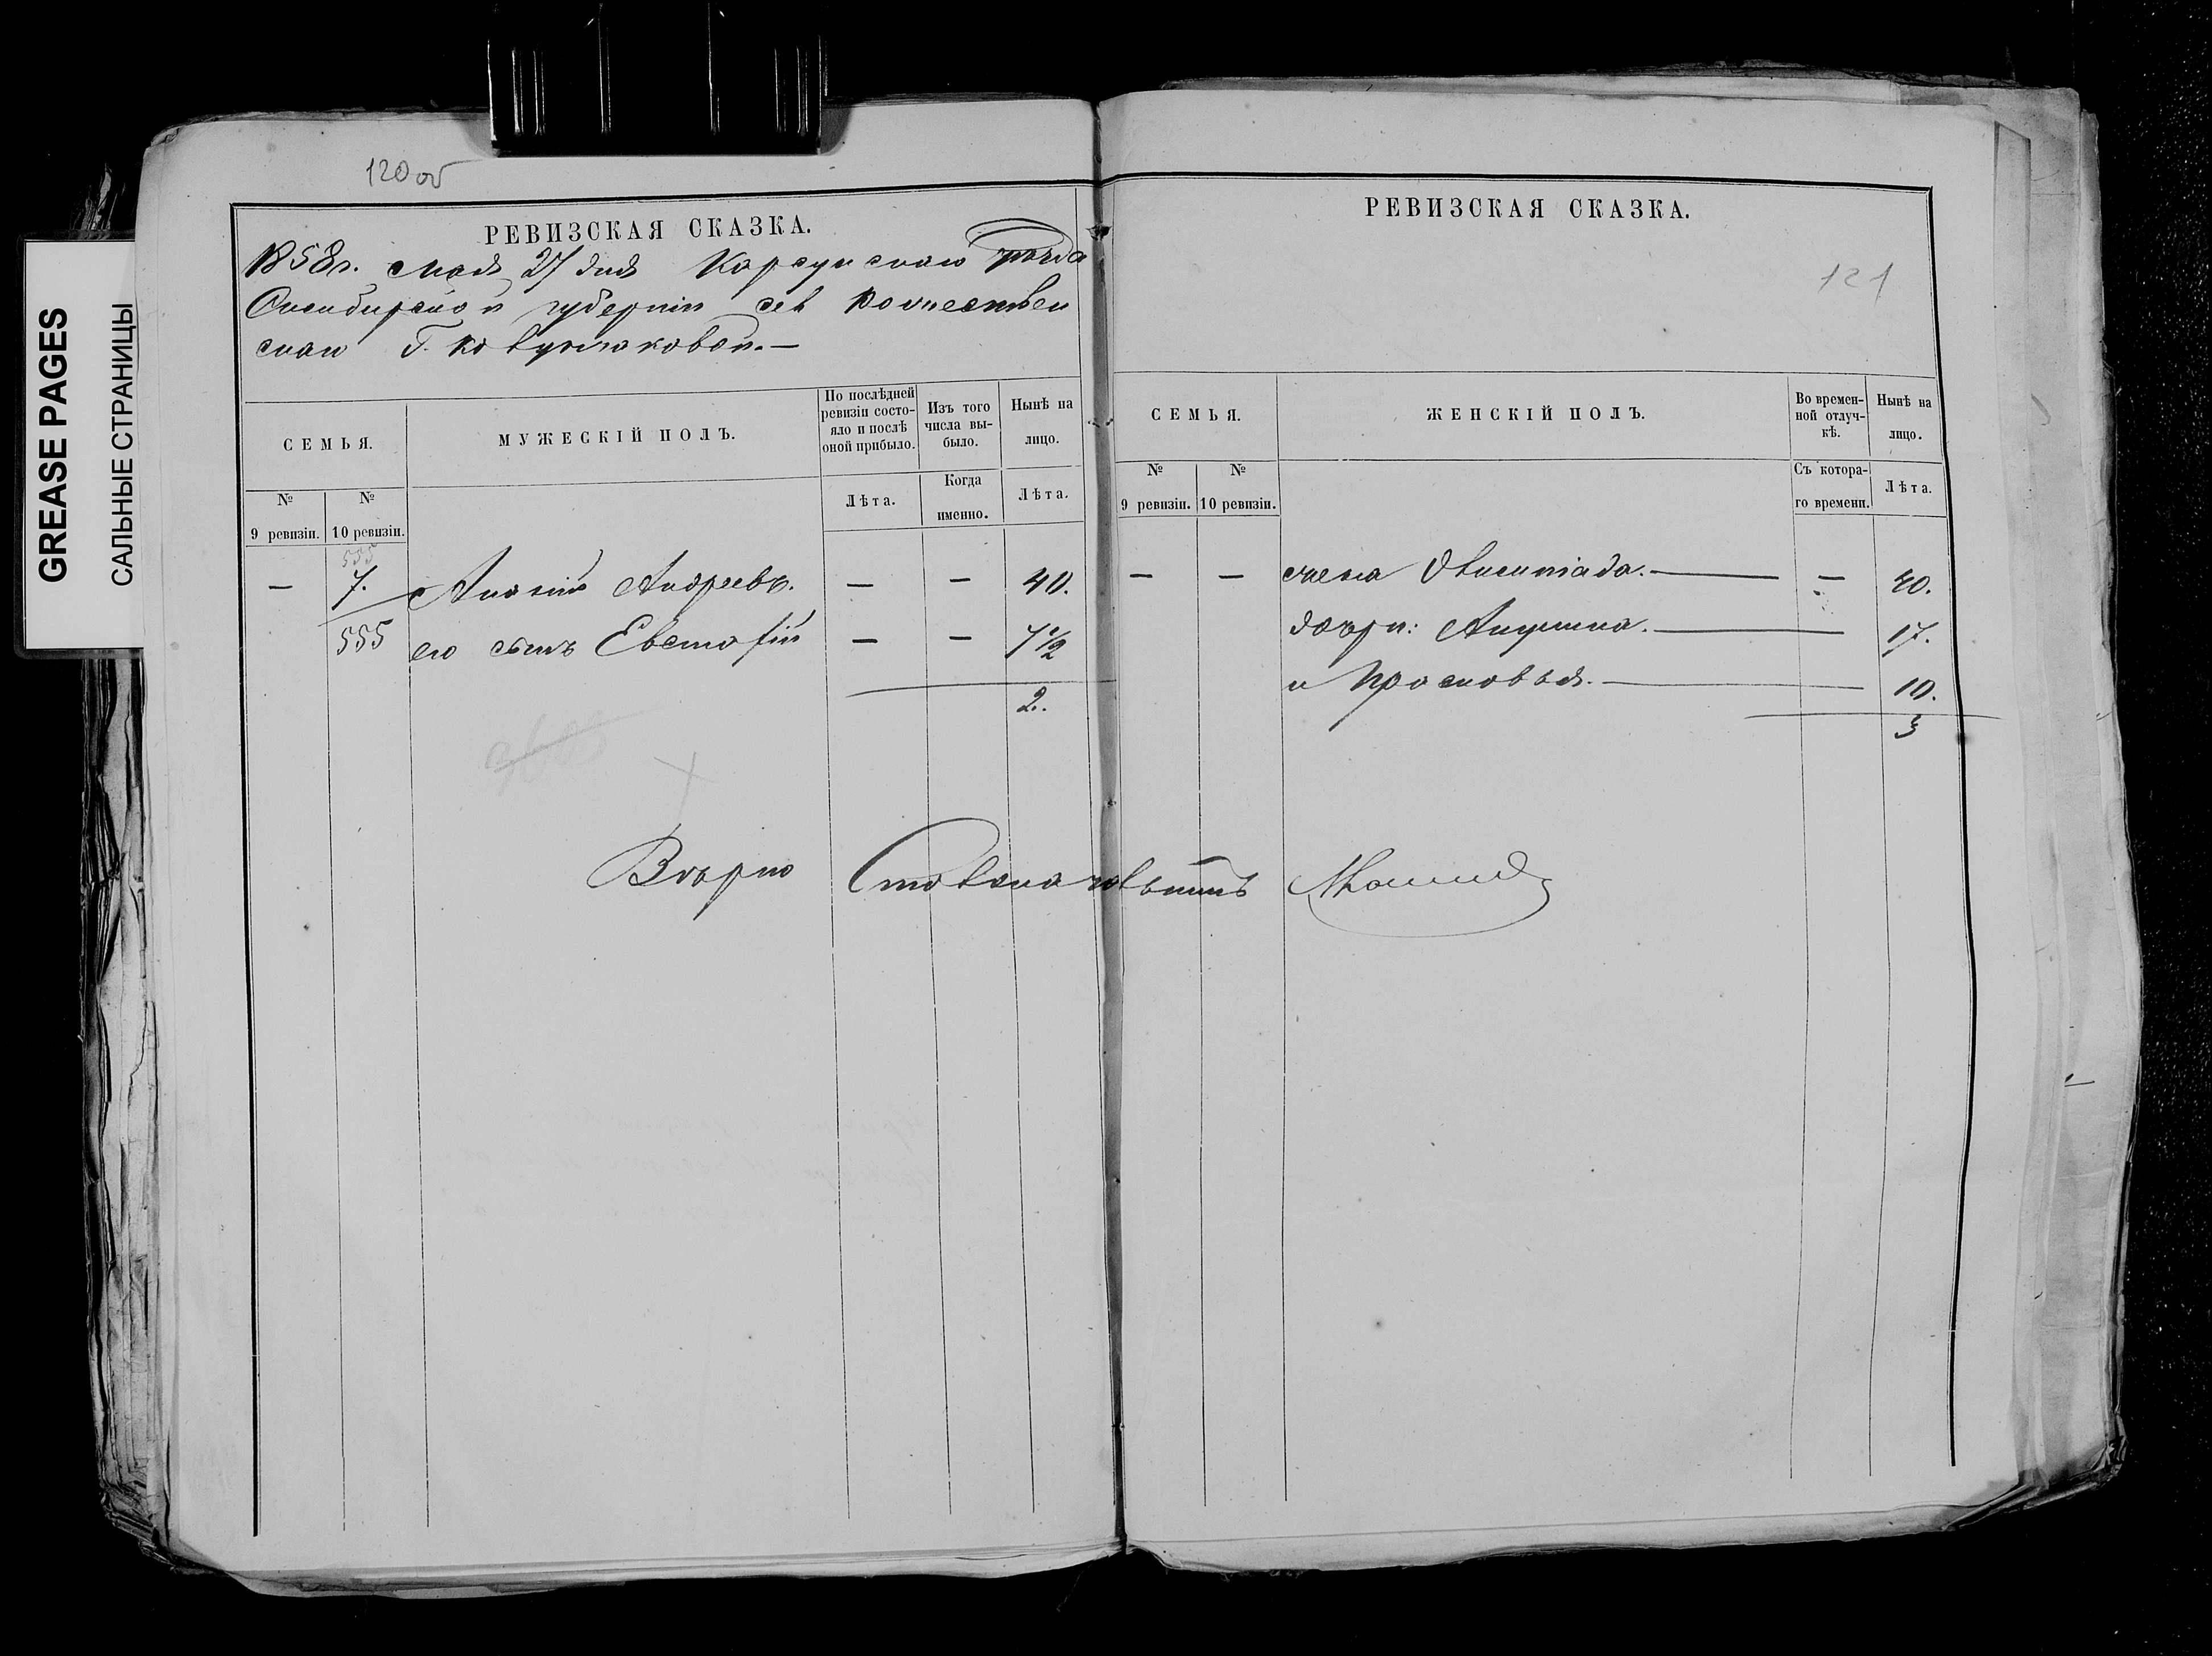 GREASE PAGES
САЛЬНЫЕ СТРАНИЦЫ
120об
РЕВИЗСКАЯ СКАЗКА.
1858 г. мая 27 дня Карсунскаго уѣзда
Симбирской губерніи сел Рождествен
скаго Г.
СЕМЬЯ.
МУЖЕСКІЙ ПОЛЪ.
По послѣдней ревизіи состояло и послѣ оной прибыло.
Изъ того числа выбыло.
Нынѣ на лицо.
№ 9 ревизіи.
№ 10 ревизіи.
Лѣта.
Когда именно.
Лѣта.
555
— 7. Ананій Андреевъ. — — 40.
555 его сынъ Евстафій — — 7 1/2
2.
РЕВИЗСКАЯ СКАЗКА.
121
СЕМЬЯ.
ЖЕНСКІЙ ПОЛЪ.
Во временной отлучкѣ.
Нынѣ на лицо.
№ 9 ревизіи.
№ 10 ревизіи.
Съ котораго времени.
Лѣта.
— — жена Олимпіада. — — 40.
дочери: Акулина. — 17.
и Прасковья. — 10.
3
Вѣрно Столоначальникъ